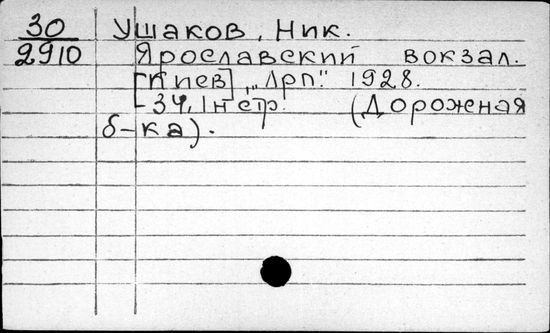 30 Ушаков, Ник.
2910 Ярославский вокзал.
[Киев], „Лрп." 1928.
34, 1н стр. (Дорожная
б-ка).